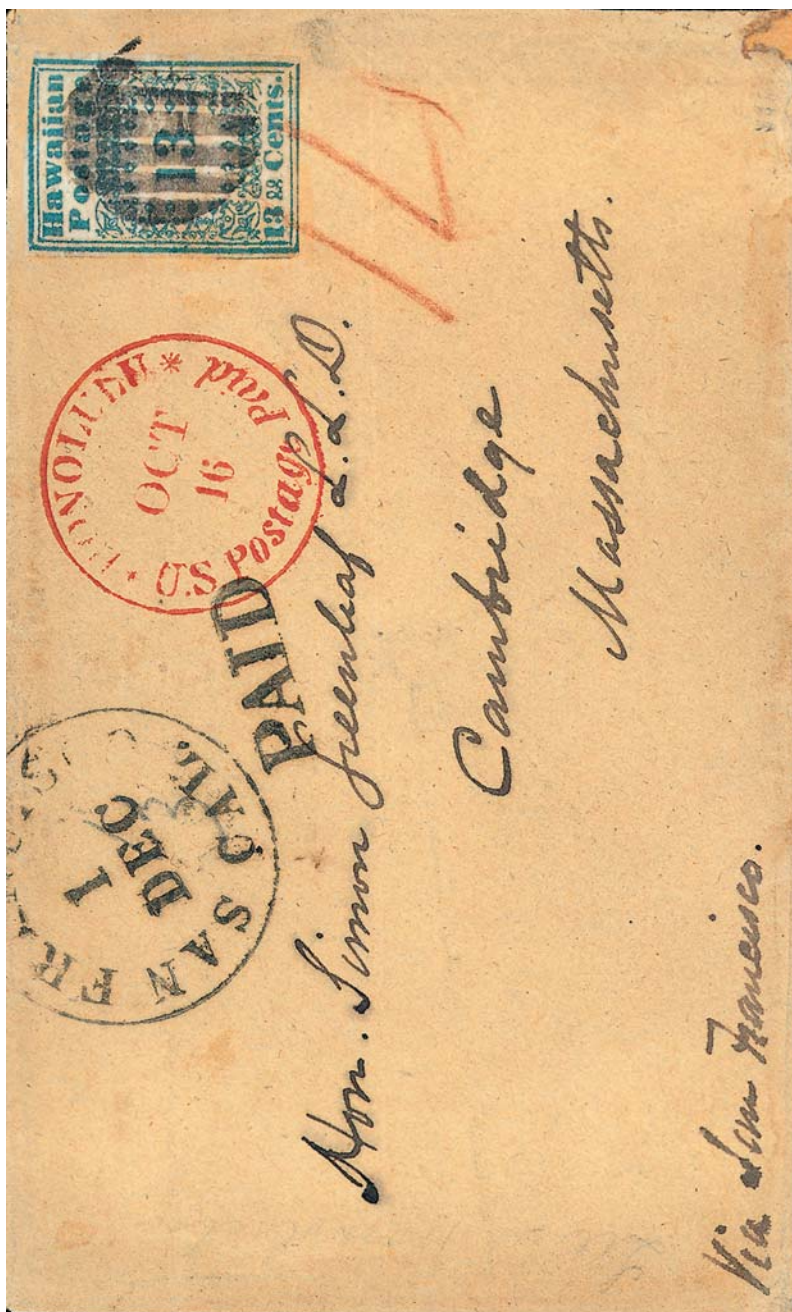 Hawaiian
Postage
13
13 Cents.
12
HONOLULU * U.S. Postage Paid *
OCT
16
SAN FRANCISCO CAL.
1
DEC
PAID
Hon. Simon Greenleaf L.L.D.
Cambridge
Massachusetts.
Via San Francisco.